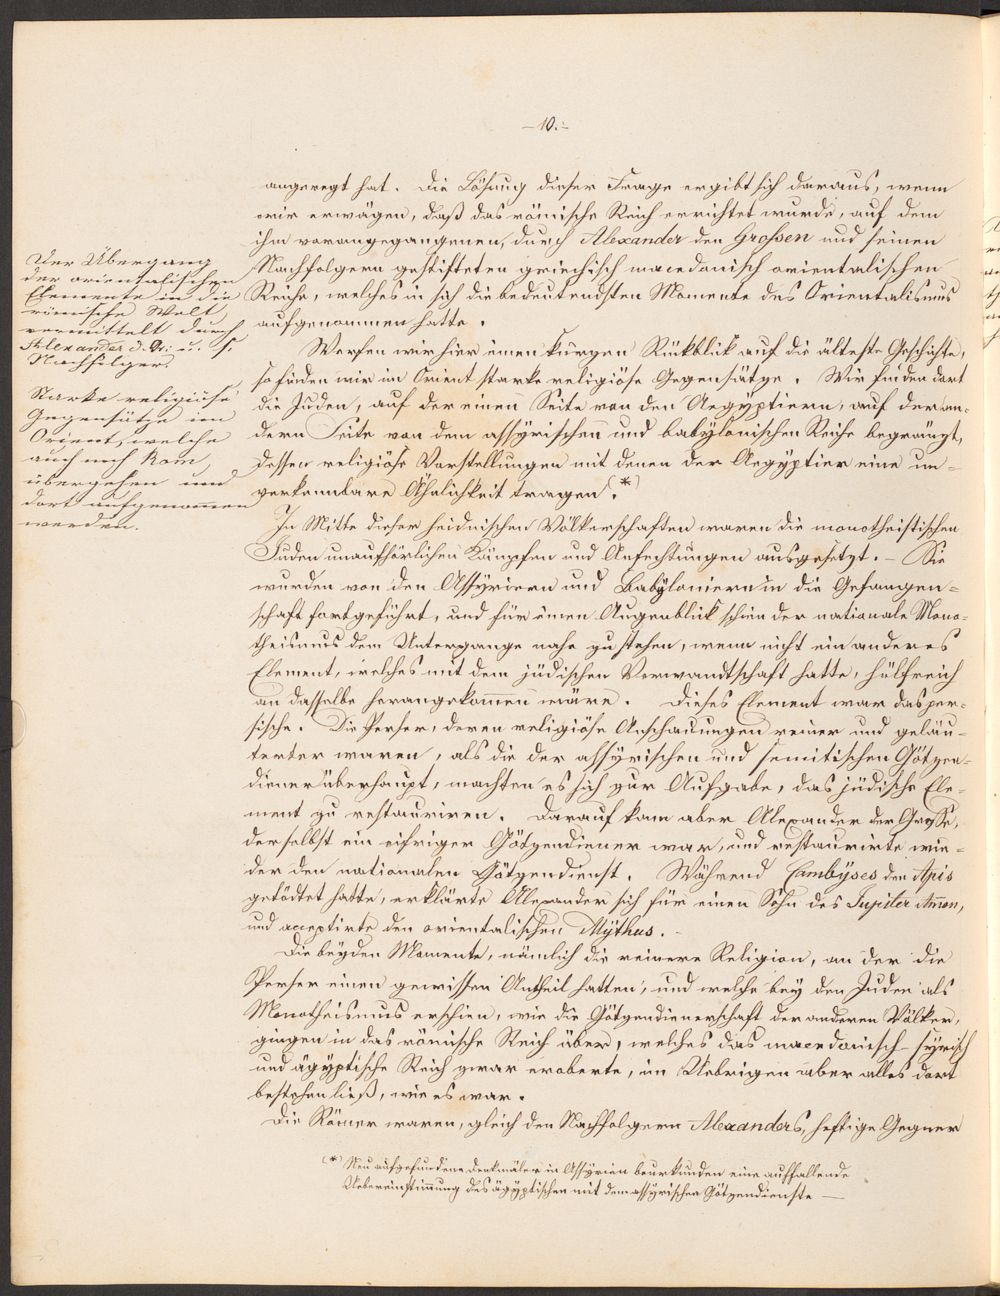 - 10. -
angeregt hat. Die Lösung dieser Frage ergibt sich daraus, wenn
wir erwägen, daß das römische Reich errichtet wurde, auf dem
ihm vorangegangenen, durch Alexander den Großen und seinen
Nachfolgern gestifteten griechisch macedonisch orientalischen
Reiche, welches in sich die bedeutendsten Momente des Orientalismus
aufgenommen hatte.
Der Übergang
der orientalischen
Elemente in die
römische Welt,
vermittelt durch
Alexander d. Gr. u. s.
Nachfolger.
Werfen wir hier einen kurzen Rückblick auf die älteste Geschichte,
so finden wir im Orient starke religiöse Gegensätze. Wir finden dort
die Juden, auf der einen Seite von den Aegyptiern, auf der an-
dern Seite von dem assyrischen und babylonischen Reiche begränzt,
dessen religiöse Vorstellungen mit denen der Aegyptier eine un-
verkennbare Ähnlichkeit tragen. (*)
Starke religiöse
Gegensätze im
Orient, welche
auch nach Rom
übergehen und
dort aufgenommen
werden.
In Mitte dieser heidnischen Völkerschaften waren die monotheistischen
Juden unaufhörlichen Kämpfen und Anfechtungen ausgesetzt. - Sie
wurden von den Assyriern und Babyloniern in die Gefangen-
schaft fortgeführt, und für einen Augenblick schien der nationale Mono-
theismus dem Untergange nahe zu stehen, wenn nicht ein anderes
Element, welches mit dem jüdischen Verwandtschaft hatte, hülfreich
an dasselbe herangekommen wäre. Dieses Element war das per-
sische. Die Perser, deren religiöse Anschauungen reiner und geläu-
terter waren, als die der assyrischen und semitischen Götzen-
diener überhaupt, machten es sich zur Aufgabe, das jüdische Ele-
ment zu restauriren. Darauf kam aber Alexander der Große,
der selbst ein eifriger Götzendiener war, und restaurirte wie-
der den nationalen Götzendienst. Während Cambyses den Apis
getödtet hatte, erklärte Alexander sich für einen Sohn des Jupiter Amon,
und acceptirte den orientalischen Mythus. -
Die beyden Momente, nämlich die reinere Religion, an der die
Perser einen gewissen Antheil hatten, und welche bey den Juden als
Monotheismus erschien, wie die Götzendienerschaft der anderen Völker,
gingen in das römische Reich über, welches das macedonisch-syrisch
und ägyptische Reich zwar eroberte, im Uebrigen aber alles dort
bestehen ließ, wie es war.
Die Römer waren, gleich den Nachfolgern Alexanders, heftige Gegner
(*) Neu aufgefundene Denkmäler in Assyrien beurkunden eine auffallende
Uebereinstimmung des ägyptischen mit dem assyrischen Götzendienste -